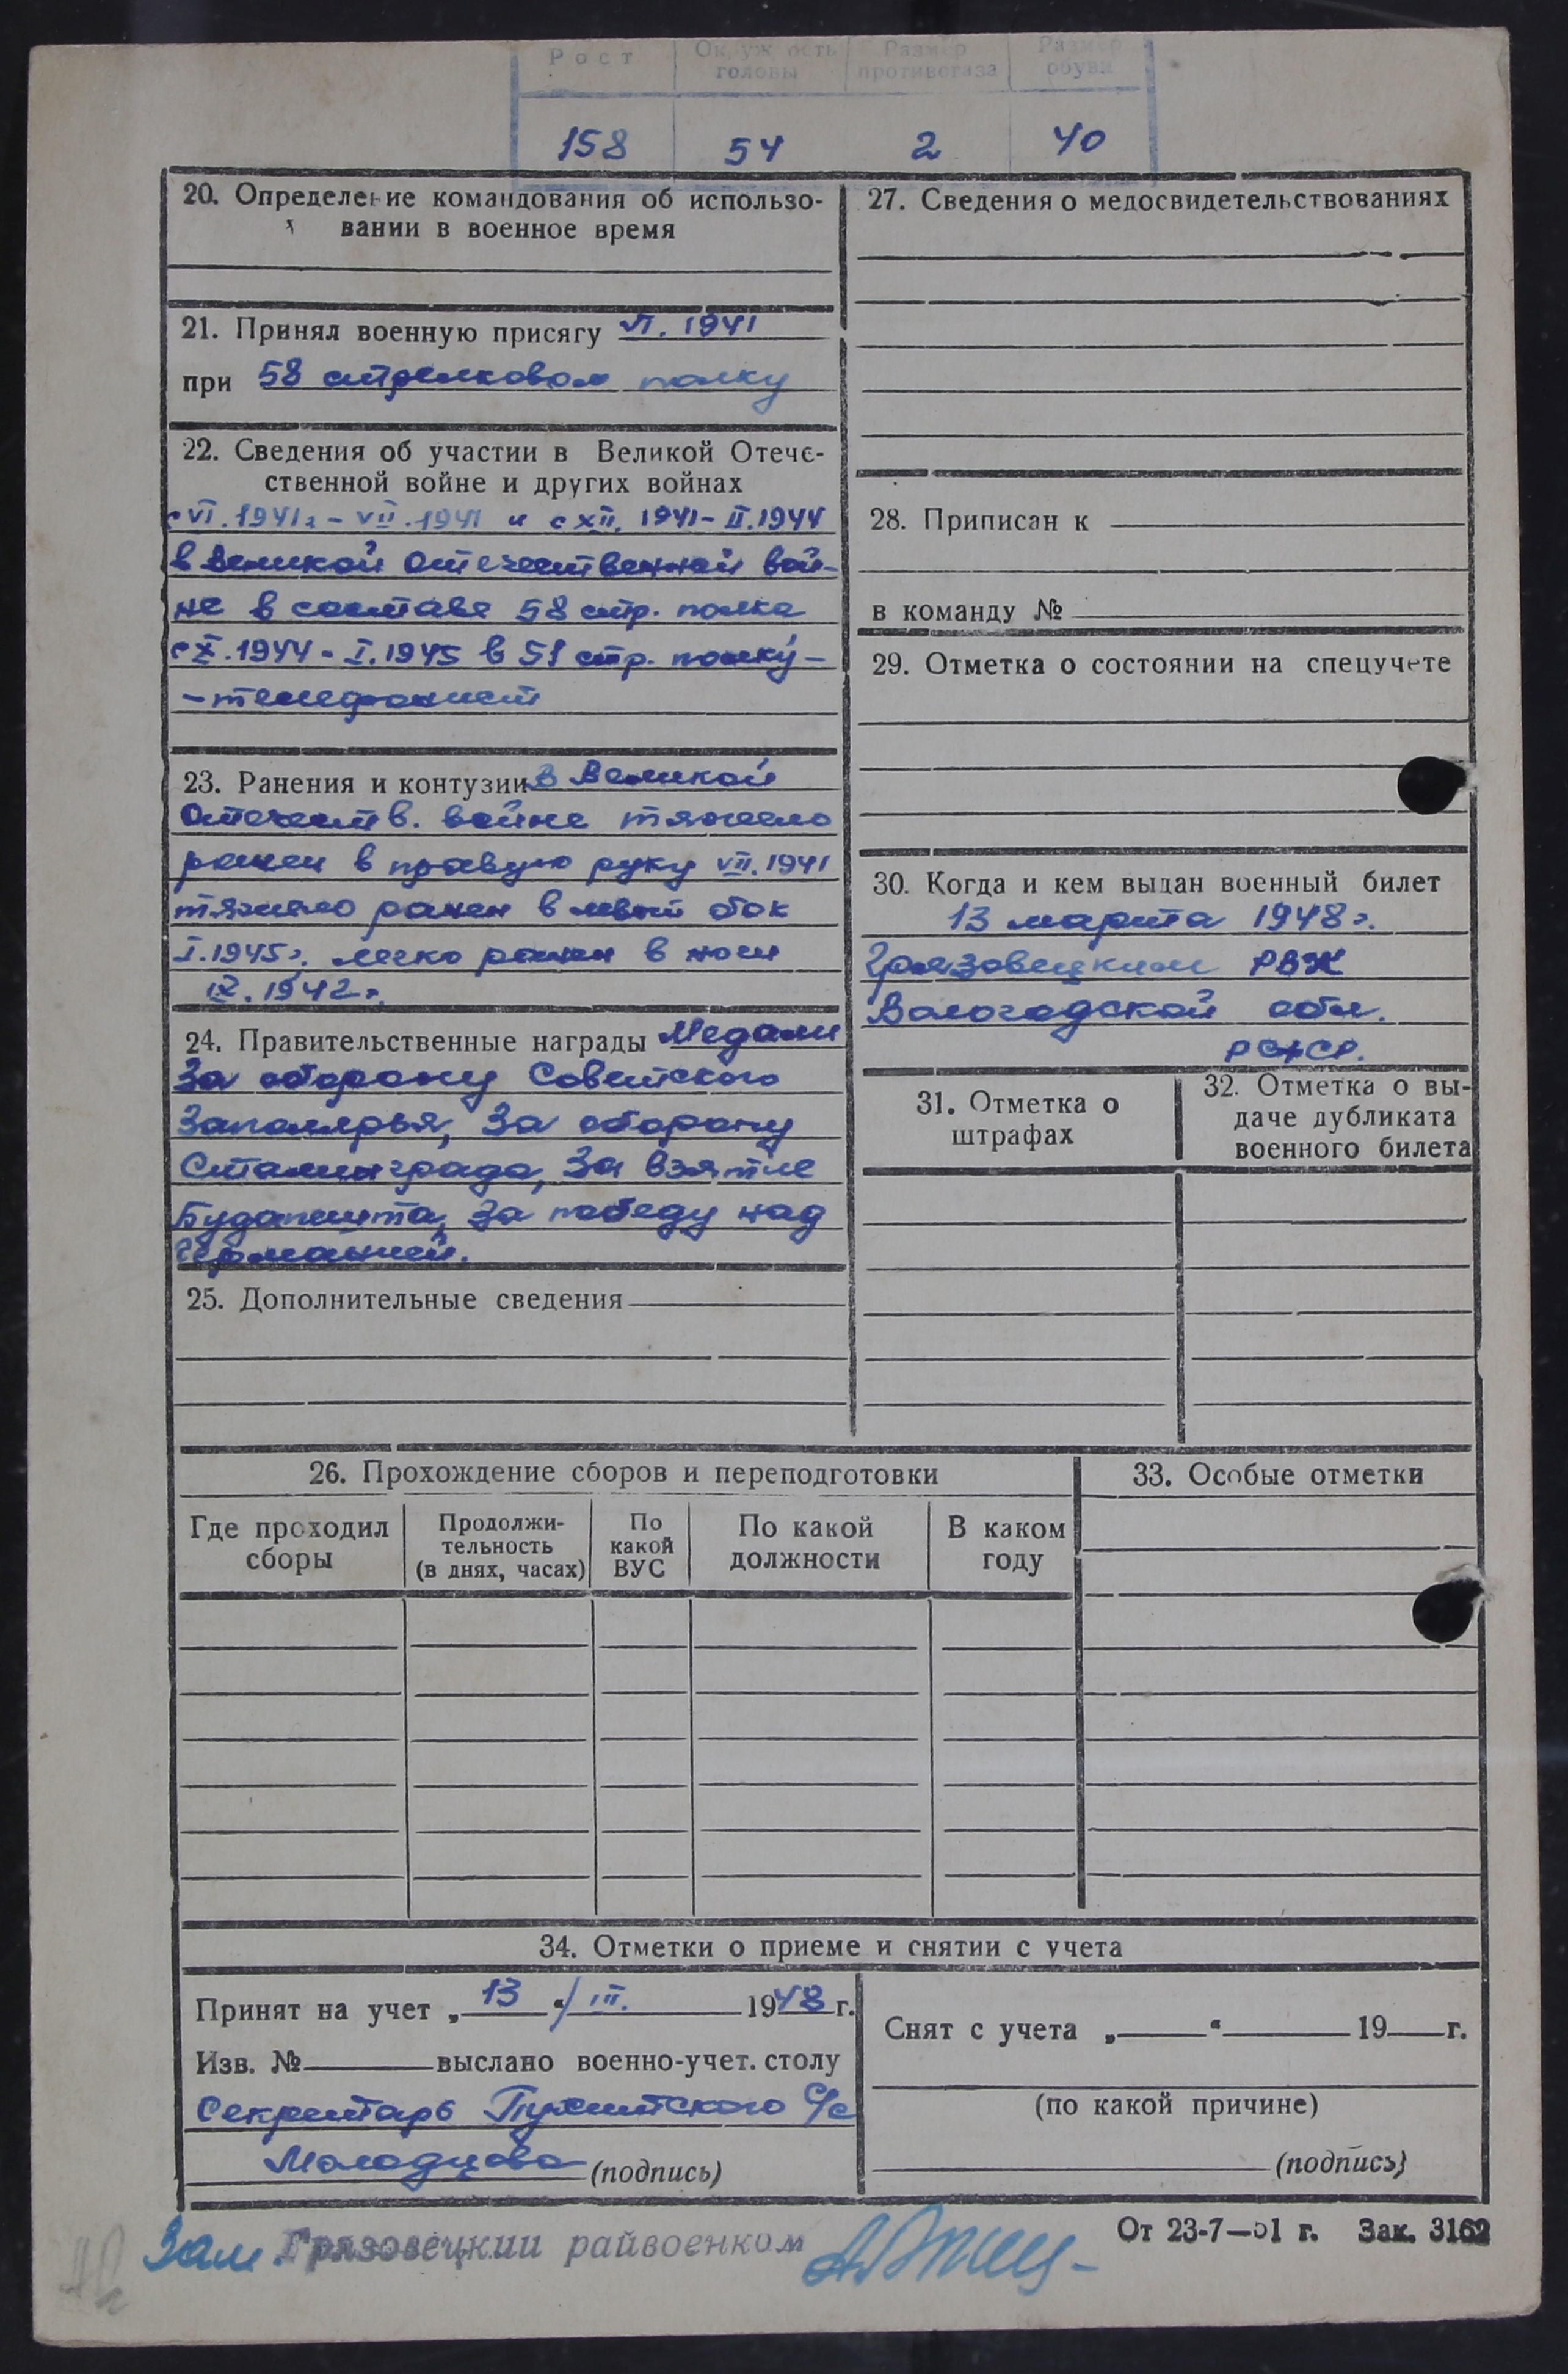 Рост Окружность головы Размер противогаза Размер обуви
158 54 2 40
20. Определение командования об использо-
вании в военное время
21. Принял военную присягу VI. 1941
при 58 стрелковом полку
22. Сведения об участии в Великой Отече-
ственной войне и других войнах
с VI. 1941 г. - VII. 1941 и с XII. 1941 - II. 1944
в Великой Отечественной вой-
не в составе 58 стр. полка
с X. 1944 - I. 1945 в 51 стр. полку -
- телефонист
23. Ранения и контузии в Великой
Отечеств. войне тяжело
ранен в правую руку VII. 1941
тяжело ранен в левый бок
I. 1945 г. легко ранен в ноги
IX. 1942 г.
24. Правительственные награды Медали
За оборону Советского
Заполярья, За оборону
Сталинграда, За взятие
Будапешта, За победу над
Германией.
25. Дополнительные сведения
27. Сведения о медосвидетельствованиях
28. Приписан к
в команду №
29. Отметка о состоянии на спецучете
30. Когда и кем выдан военный билет
13 марта 1948 г.
Грязовецким РВК
Вологодской обл.
РСФСР.
31. Отметка о
штрафах
32. Отметка о вы-
даче дубликата
военного билета
26. Прохождение сборов и переподготовки
Где проходил
сборы
Продолжи-
тельность
(в днях, часах)
По
какой
ВУС
По какой
должности
В каком
году
33. Особые отметки
34. Отметки о приеме и снятии с учета
Принят на учет „ 13 “ III. 1948 г.
Изв. № выслано военно-учет. столу
Секретарь С/с
Молодцова (подпись)
Снят с учета „ “ 19 г.
(по какой причине)
(подпись)
Зам. Грязовецкий райвоенком
От 23-7—51 г. Зак. 3162